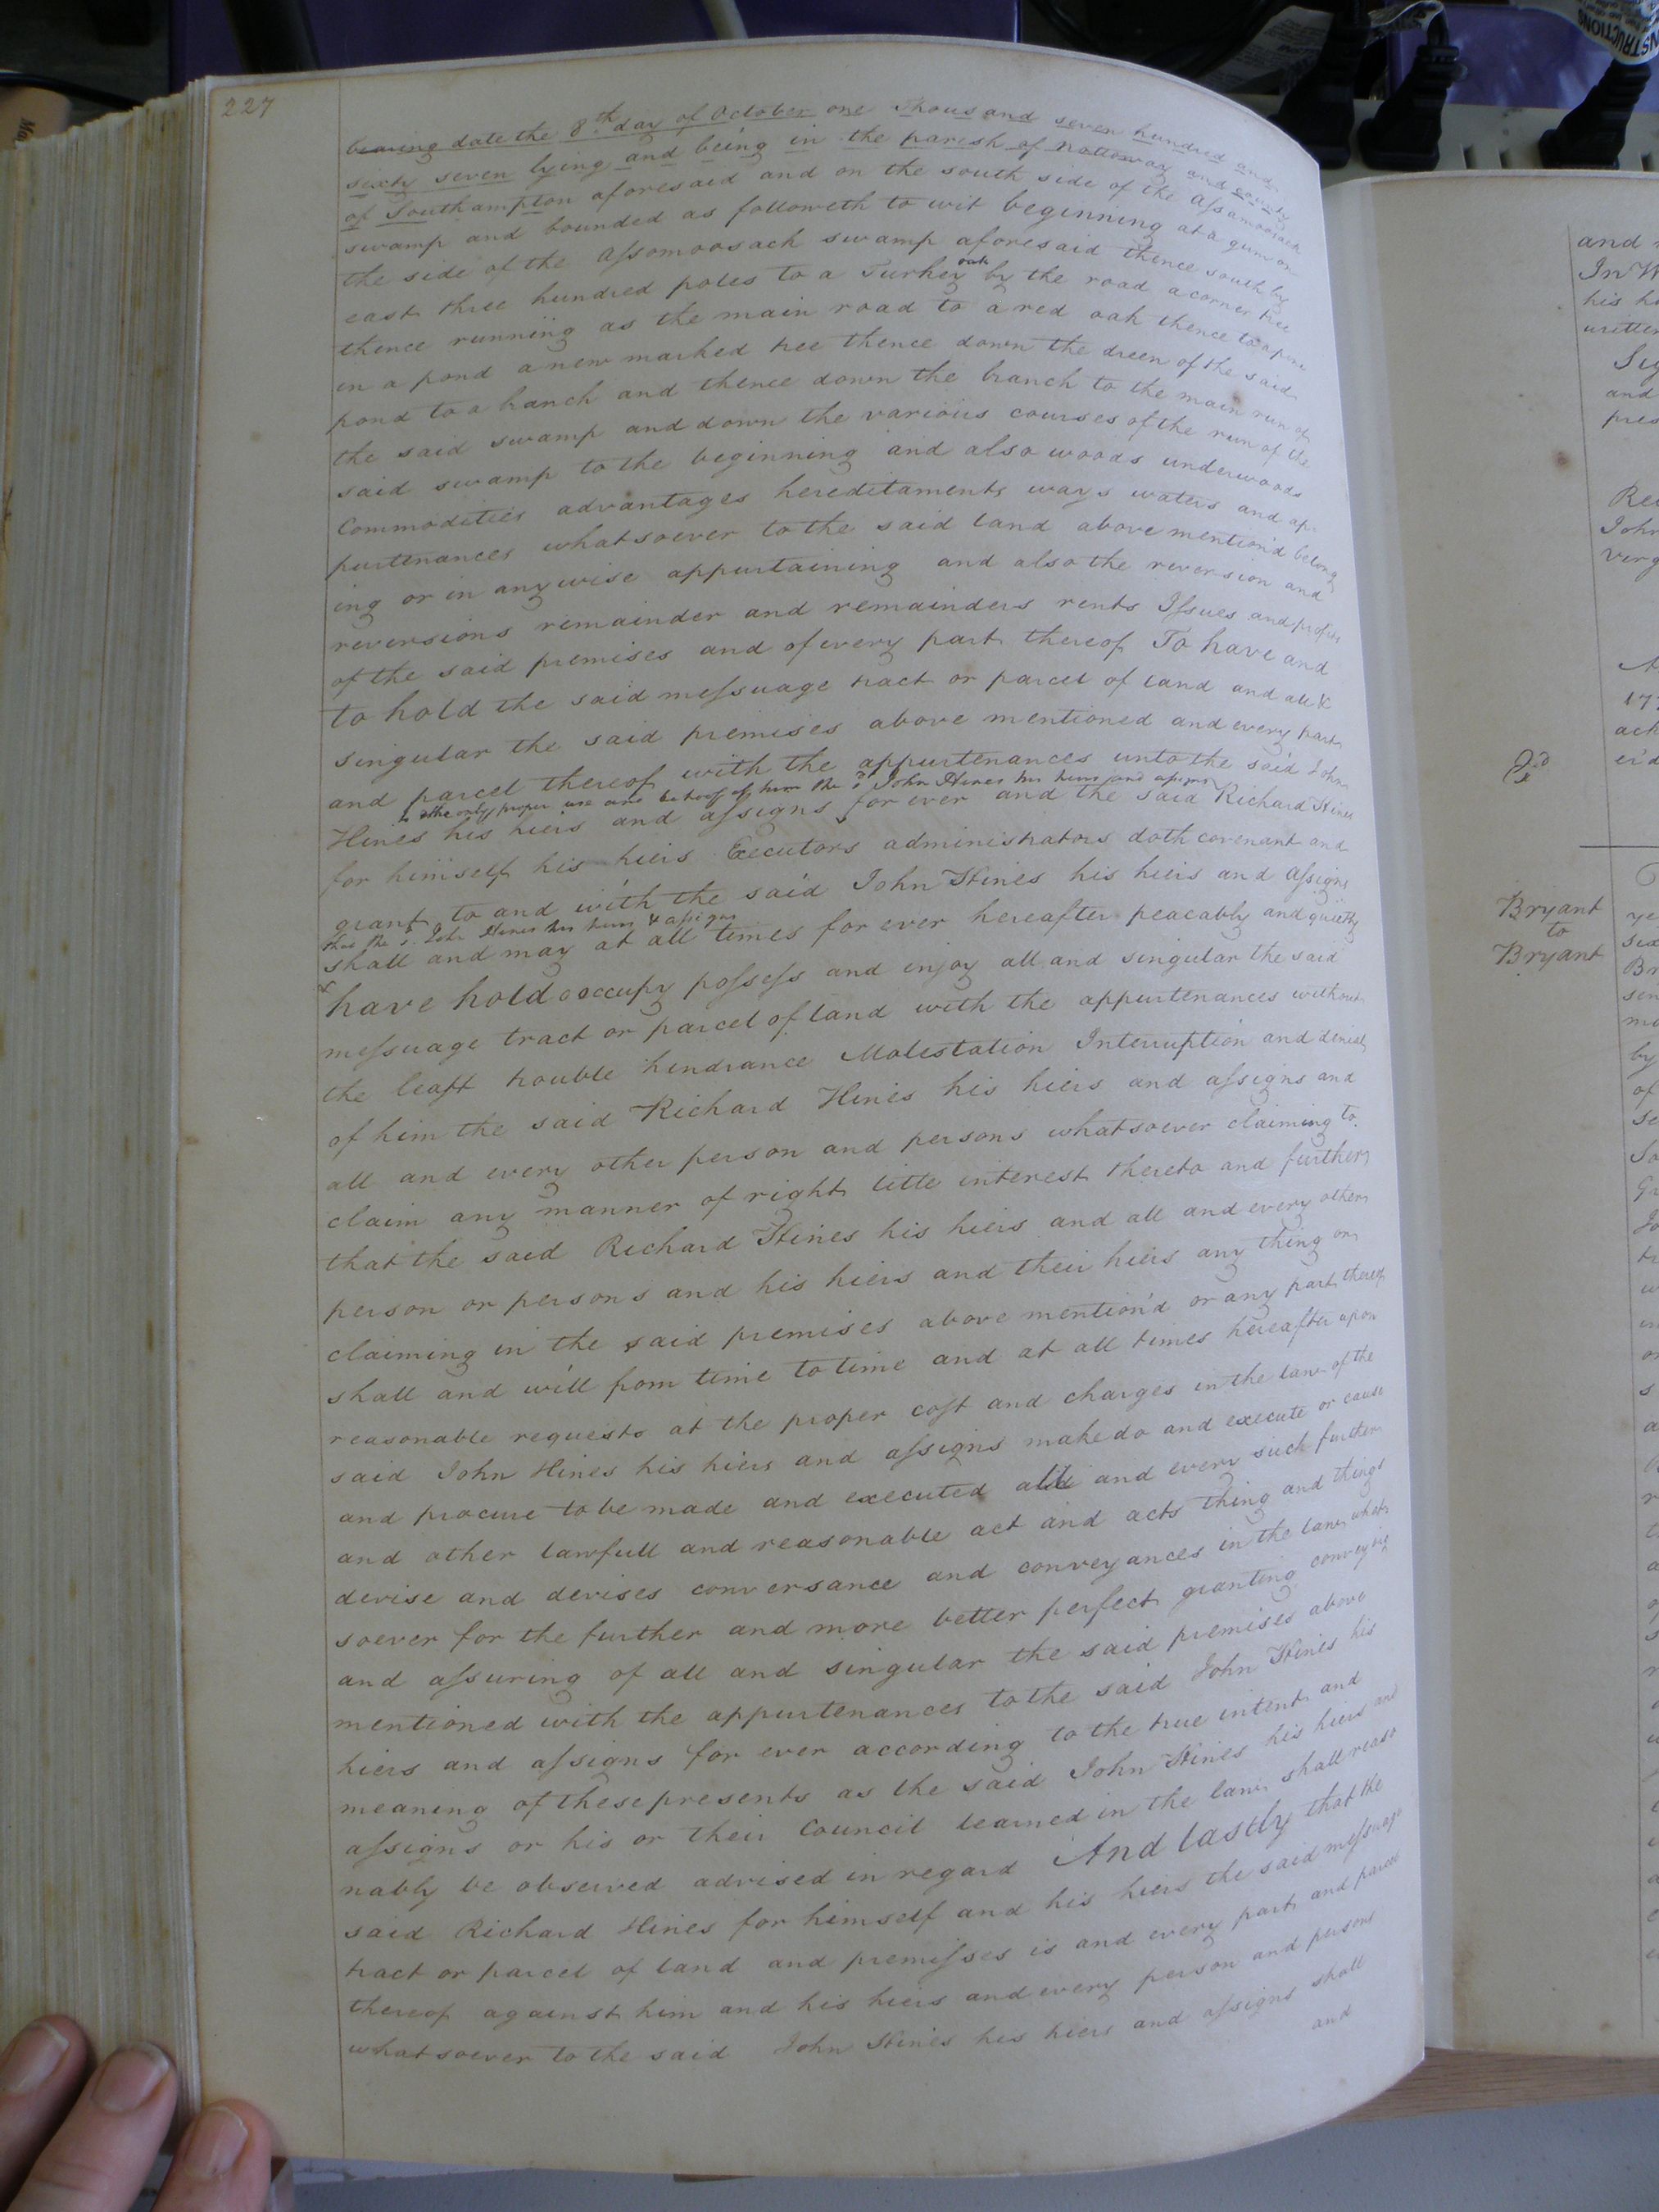 227
bearing date the 8th day of October one Thousand seven hundred and
sixty seven lying and being in the parish of Nottoway and County
of Southampton aforesaid and on the south side of the Assamoosack
swamp and bounded as followeth to wit beginning at a gum on
the side of the Assomoosack swamp aforesaid thence south by
east three hundred poles to a Turkey oak by the road a corner tree
thence running as the main road to a red oak thence to a pine
in a pond a new marked tree thence down the dreen of the said
pond to a branch and thence down the branch to the main run of
the said swamp and down the various courses of the run of the
said swamp to the beginning and also woods underwoods
Commodities advantages hereditaments ways waters and ap-
purtenances whatsoever to the said land above mention'd belong
ing or in any wise appurtaining and also the reversion and
reversions remainder and remainders rents Issues and profits
of the said premises and of every part thereof To have and
to hold the said messuage tract or parcel of land and all &
singular the said premises above mentioned and every part
and parcel thereof with the appurtenances unto the said John
to the only proper use and behoof of him the sd. John Hines his heirs and assigns
Hines his heirs and assigns for ever and the said Richard Hines
for himself his heirs Executors administrators doth covenant and
grant to and with the said John Hines his heirs and assigns
that the s. John Hines his heirs & assigns
shall and may at all times for ever hereafter peacably and quietly
& have hold occupy possess and enjoy all and singular the said
messuage tract or parcel of land with the appurtenances without
the least trouble hendrance Molestation Interruption and denial
of him the said Richard Hines his heirs and assigns and
all and every other person and persons whatsoever claiming to
claim any manner of right title interest thereto and further
that the said Richard Hines his heirs and all and every other
person or persons and his heirs and their heirs any thing or
claiming in the said premises above mention'd or any part thereof
shall and will from time to time and at all times hereafter upon
reasonable requests at the proper cost and charges in the law of the
said John Hines his heirs and assigns make do and execute or cause
and procure to be made and executed all and every such further
and other lawfull and reasonable act and acts thing and things
devise and devises conversance and conveyances in the law whats
soever for the further and more better perfect granting conveying
and assuring of all and singular the said premises above
mentioned with the appurtenances to the said John Hines his
heirs and assigns for ever according to the true intent and
meaning of these presents as the said John Hines his heirs and
assigns or his or their Council learned in the law shall reaso
nably be observed advised in regard And lastly that the
said Richard Hines for himself and his heirs the said messuage
tract or parcel of land and premisses is and every part and parcel
thereof against him and his heirs and every person and persons
whatsoever to the said John Hines his heirs and assigns shall
and
Bryant
to
Bryant